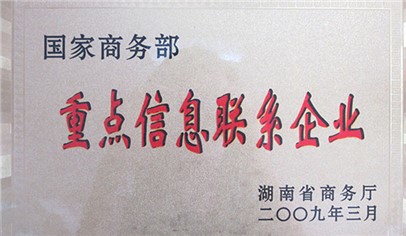 国家商务部
重点信息联系企业
湖南省商务厅
二〇〇九年三月